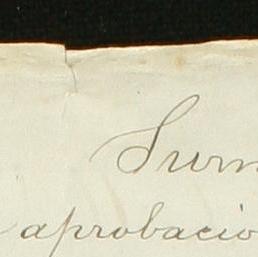 Sum
aprobacio